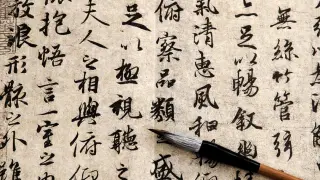 無絲竹管弦
足以暢叙幽
氣清惠風和暢仰
俯察品類盛
足以極視聽之
夫人之相與俯仰
抱悟言一室之
放浪形骸之外雖